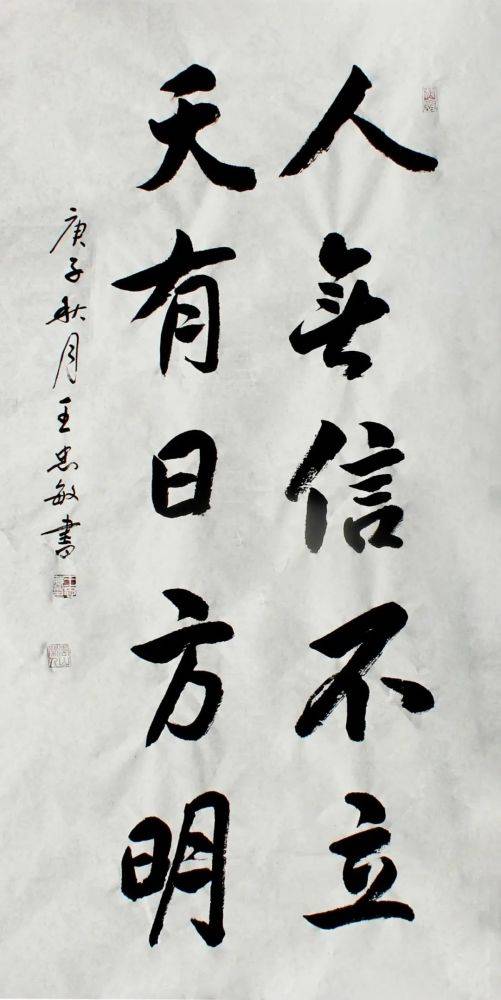 人無信不立
天有日方明
庚子秋月王忠敏書